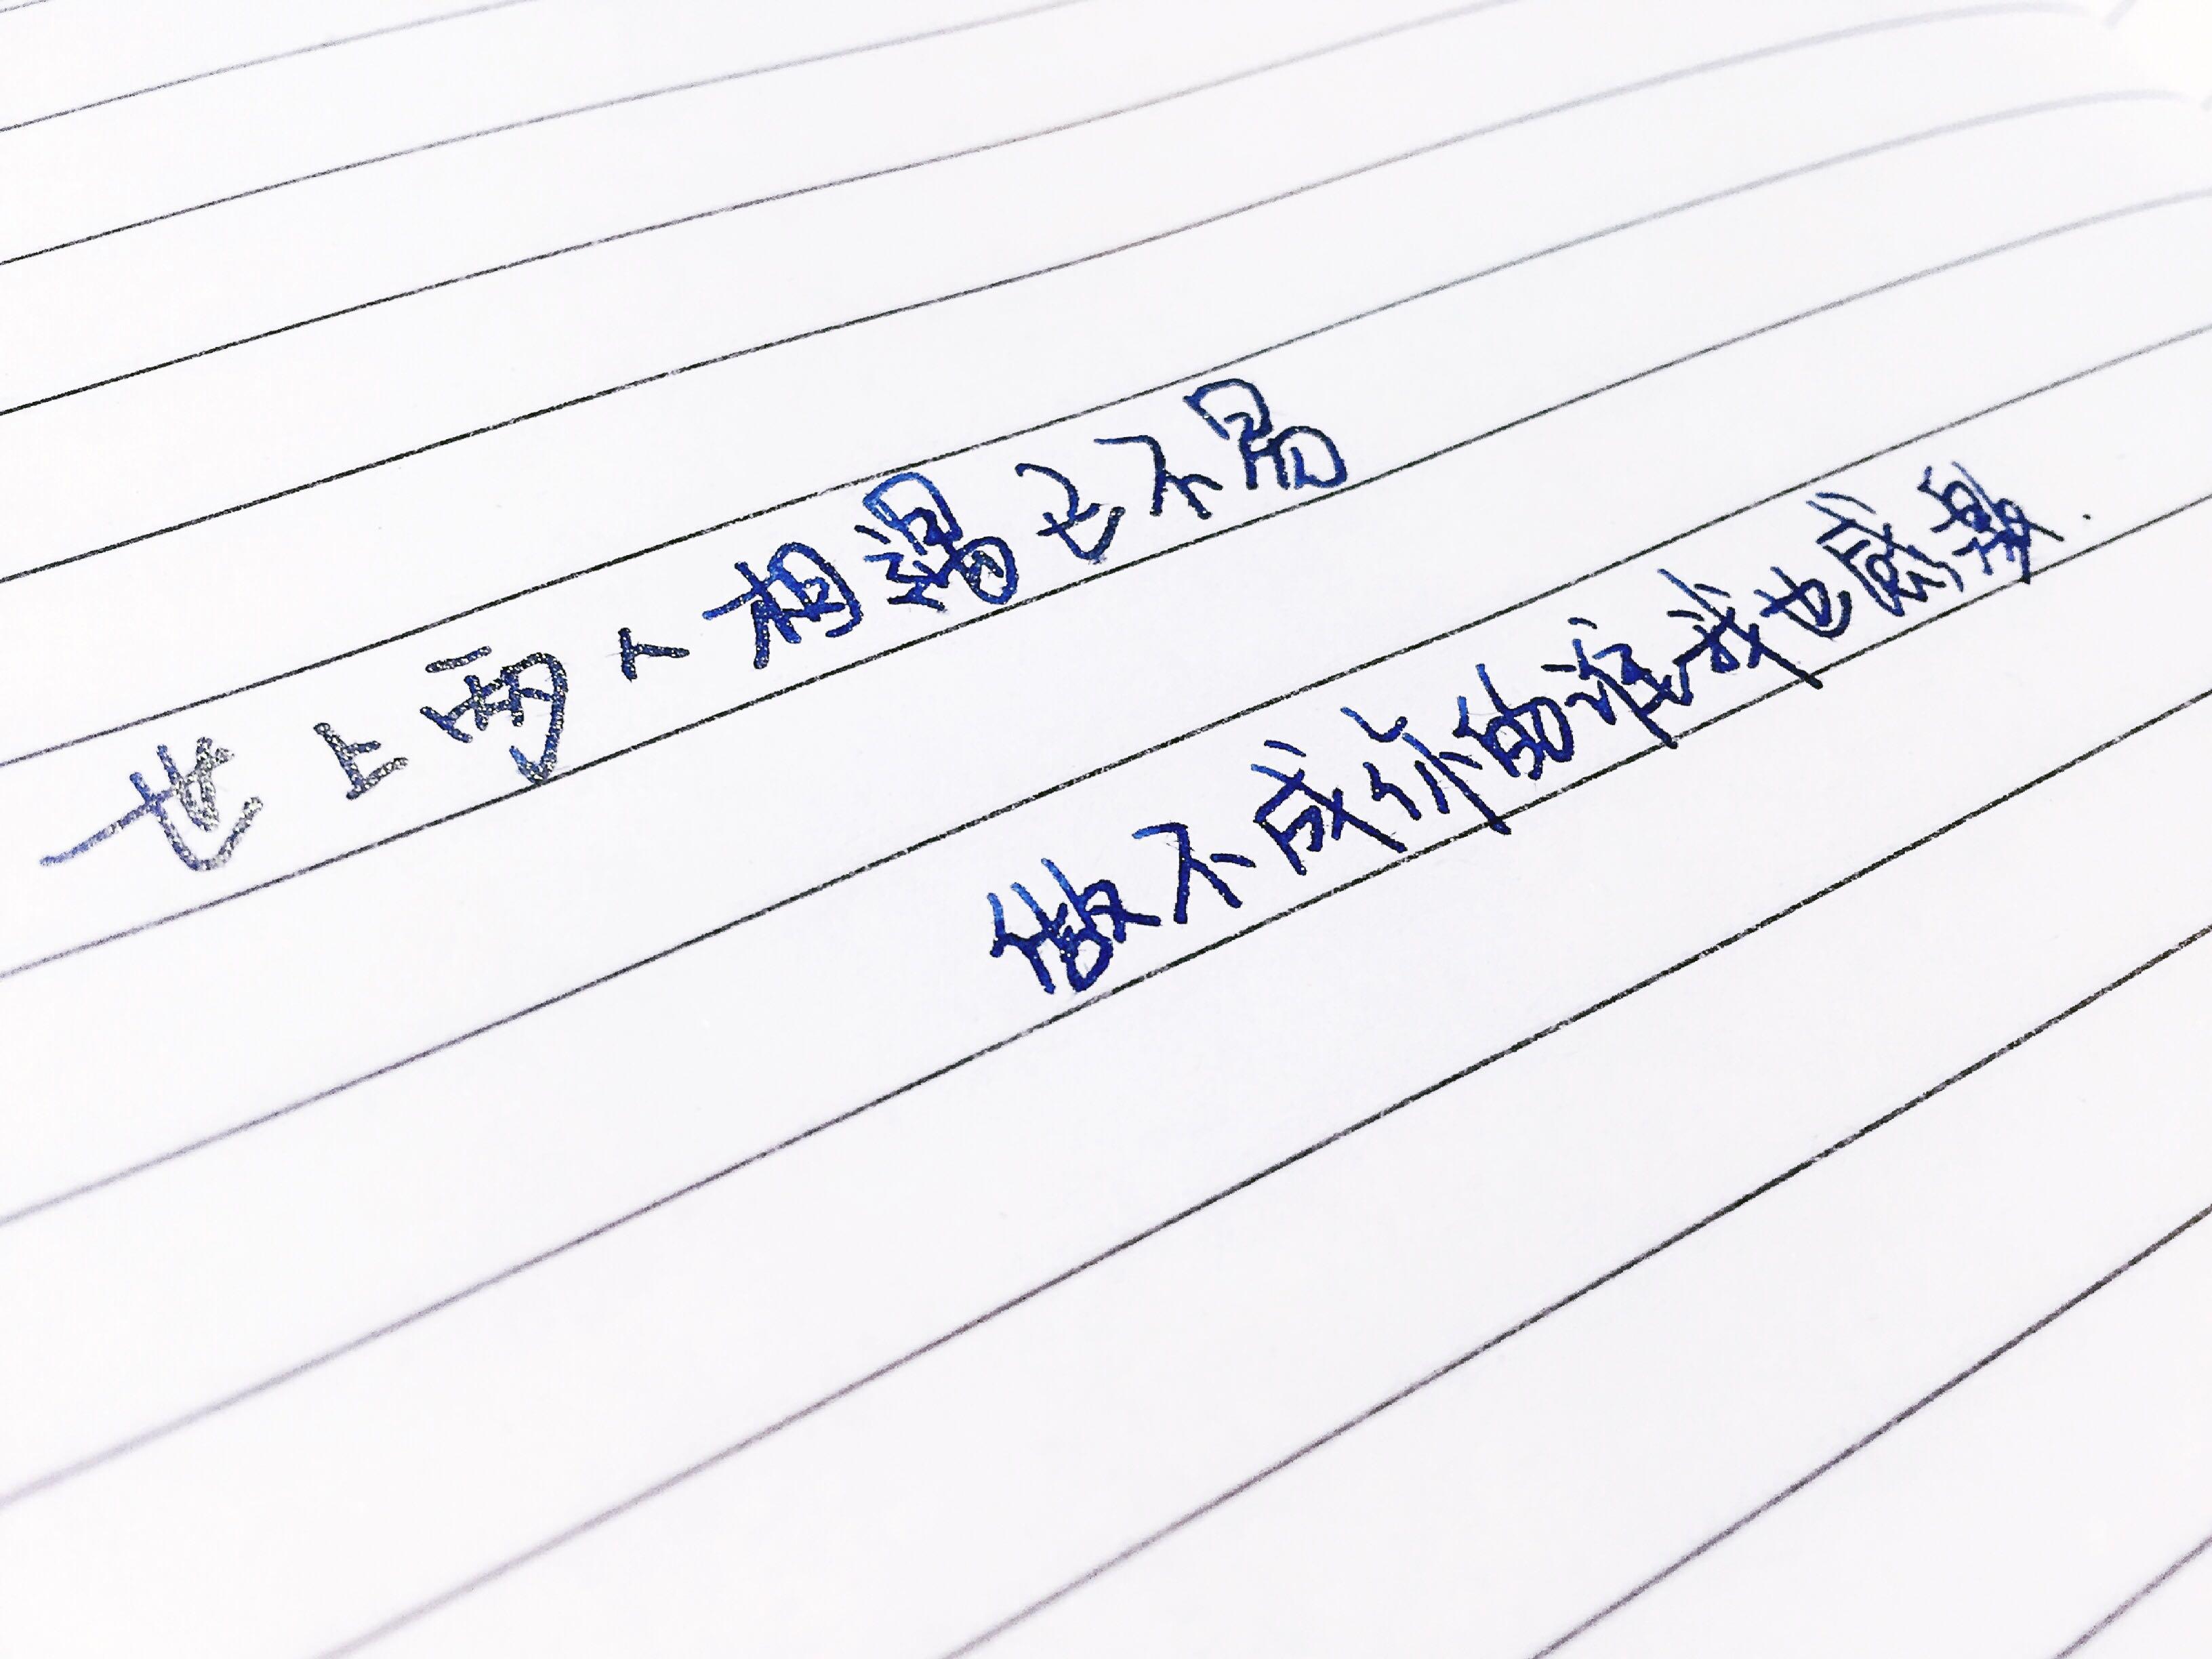 世上两人相遇已不易
做不成你的谁我也感激.